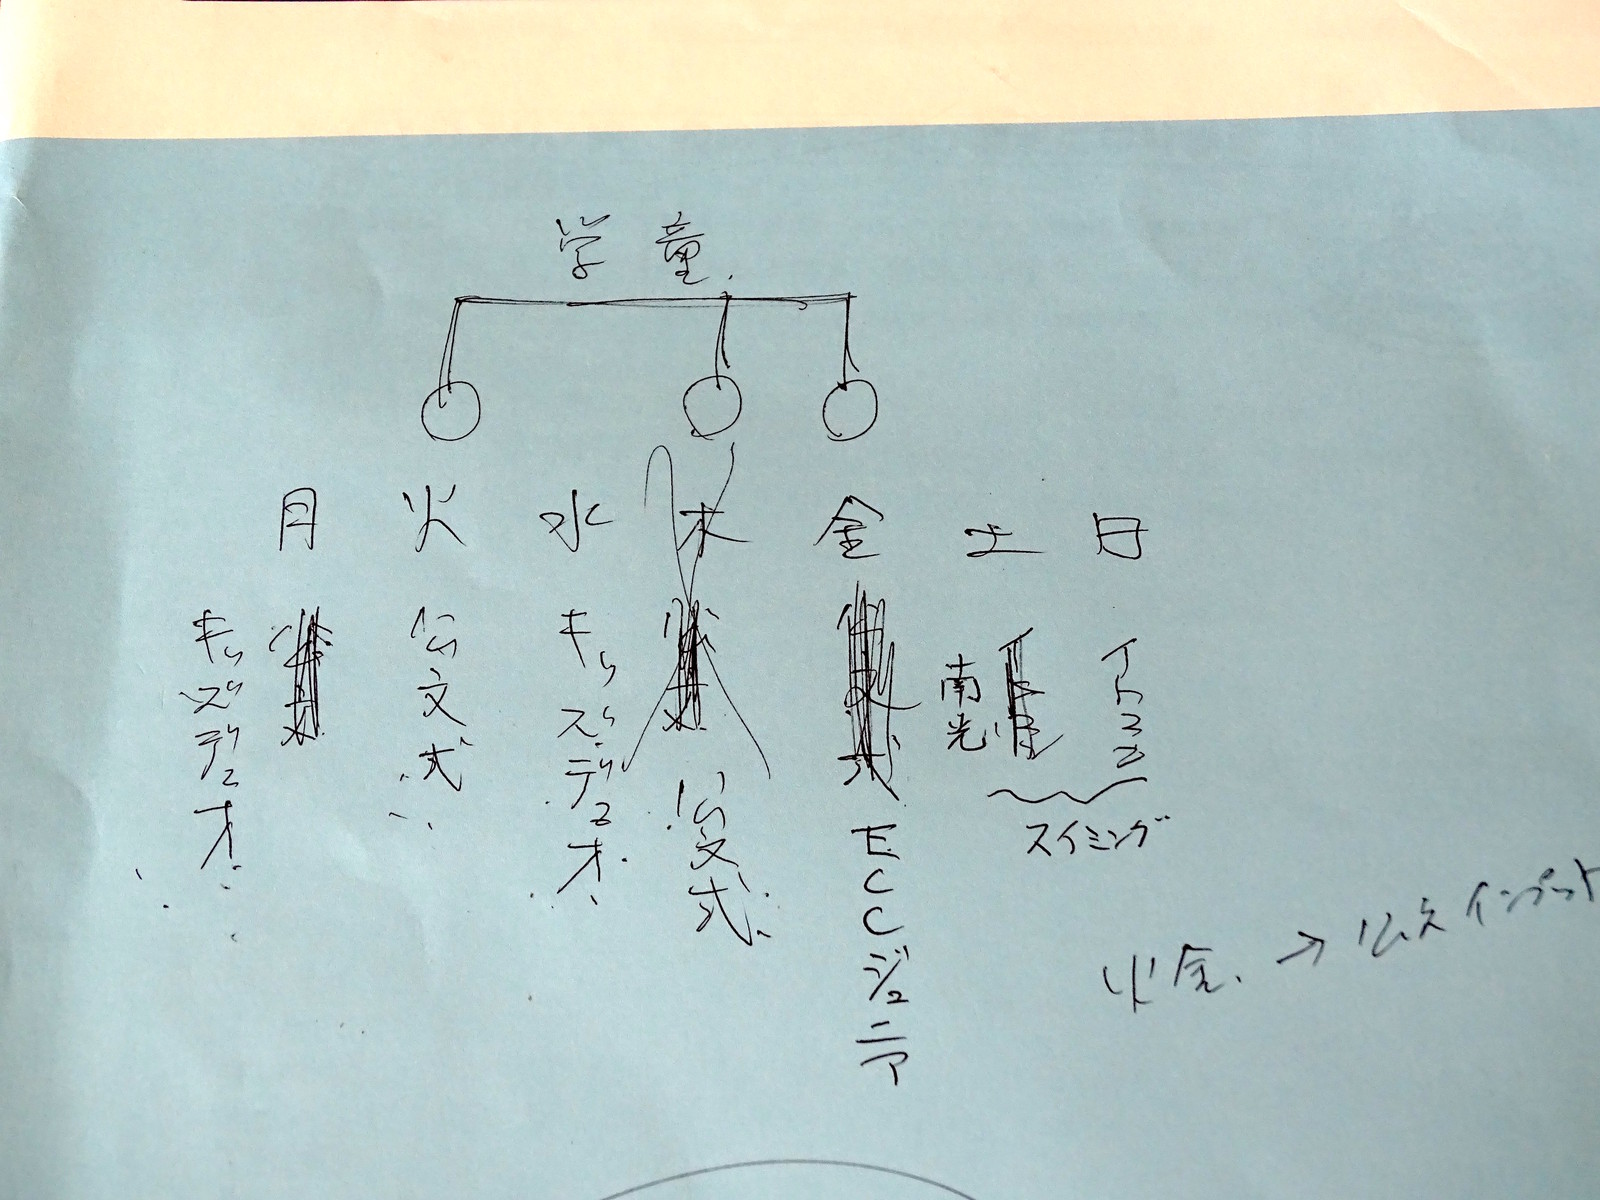 学童
月 火 水 木 金 土 日
キッズデュオ
公文式
キッズデュオ
公文式
ECCジュニア
南光
イトマン
スイミング
火金、→公文